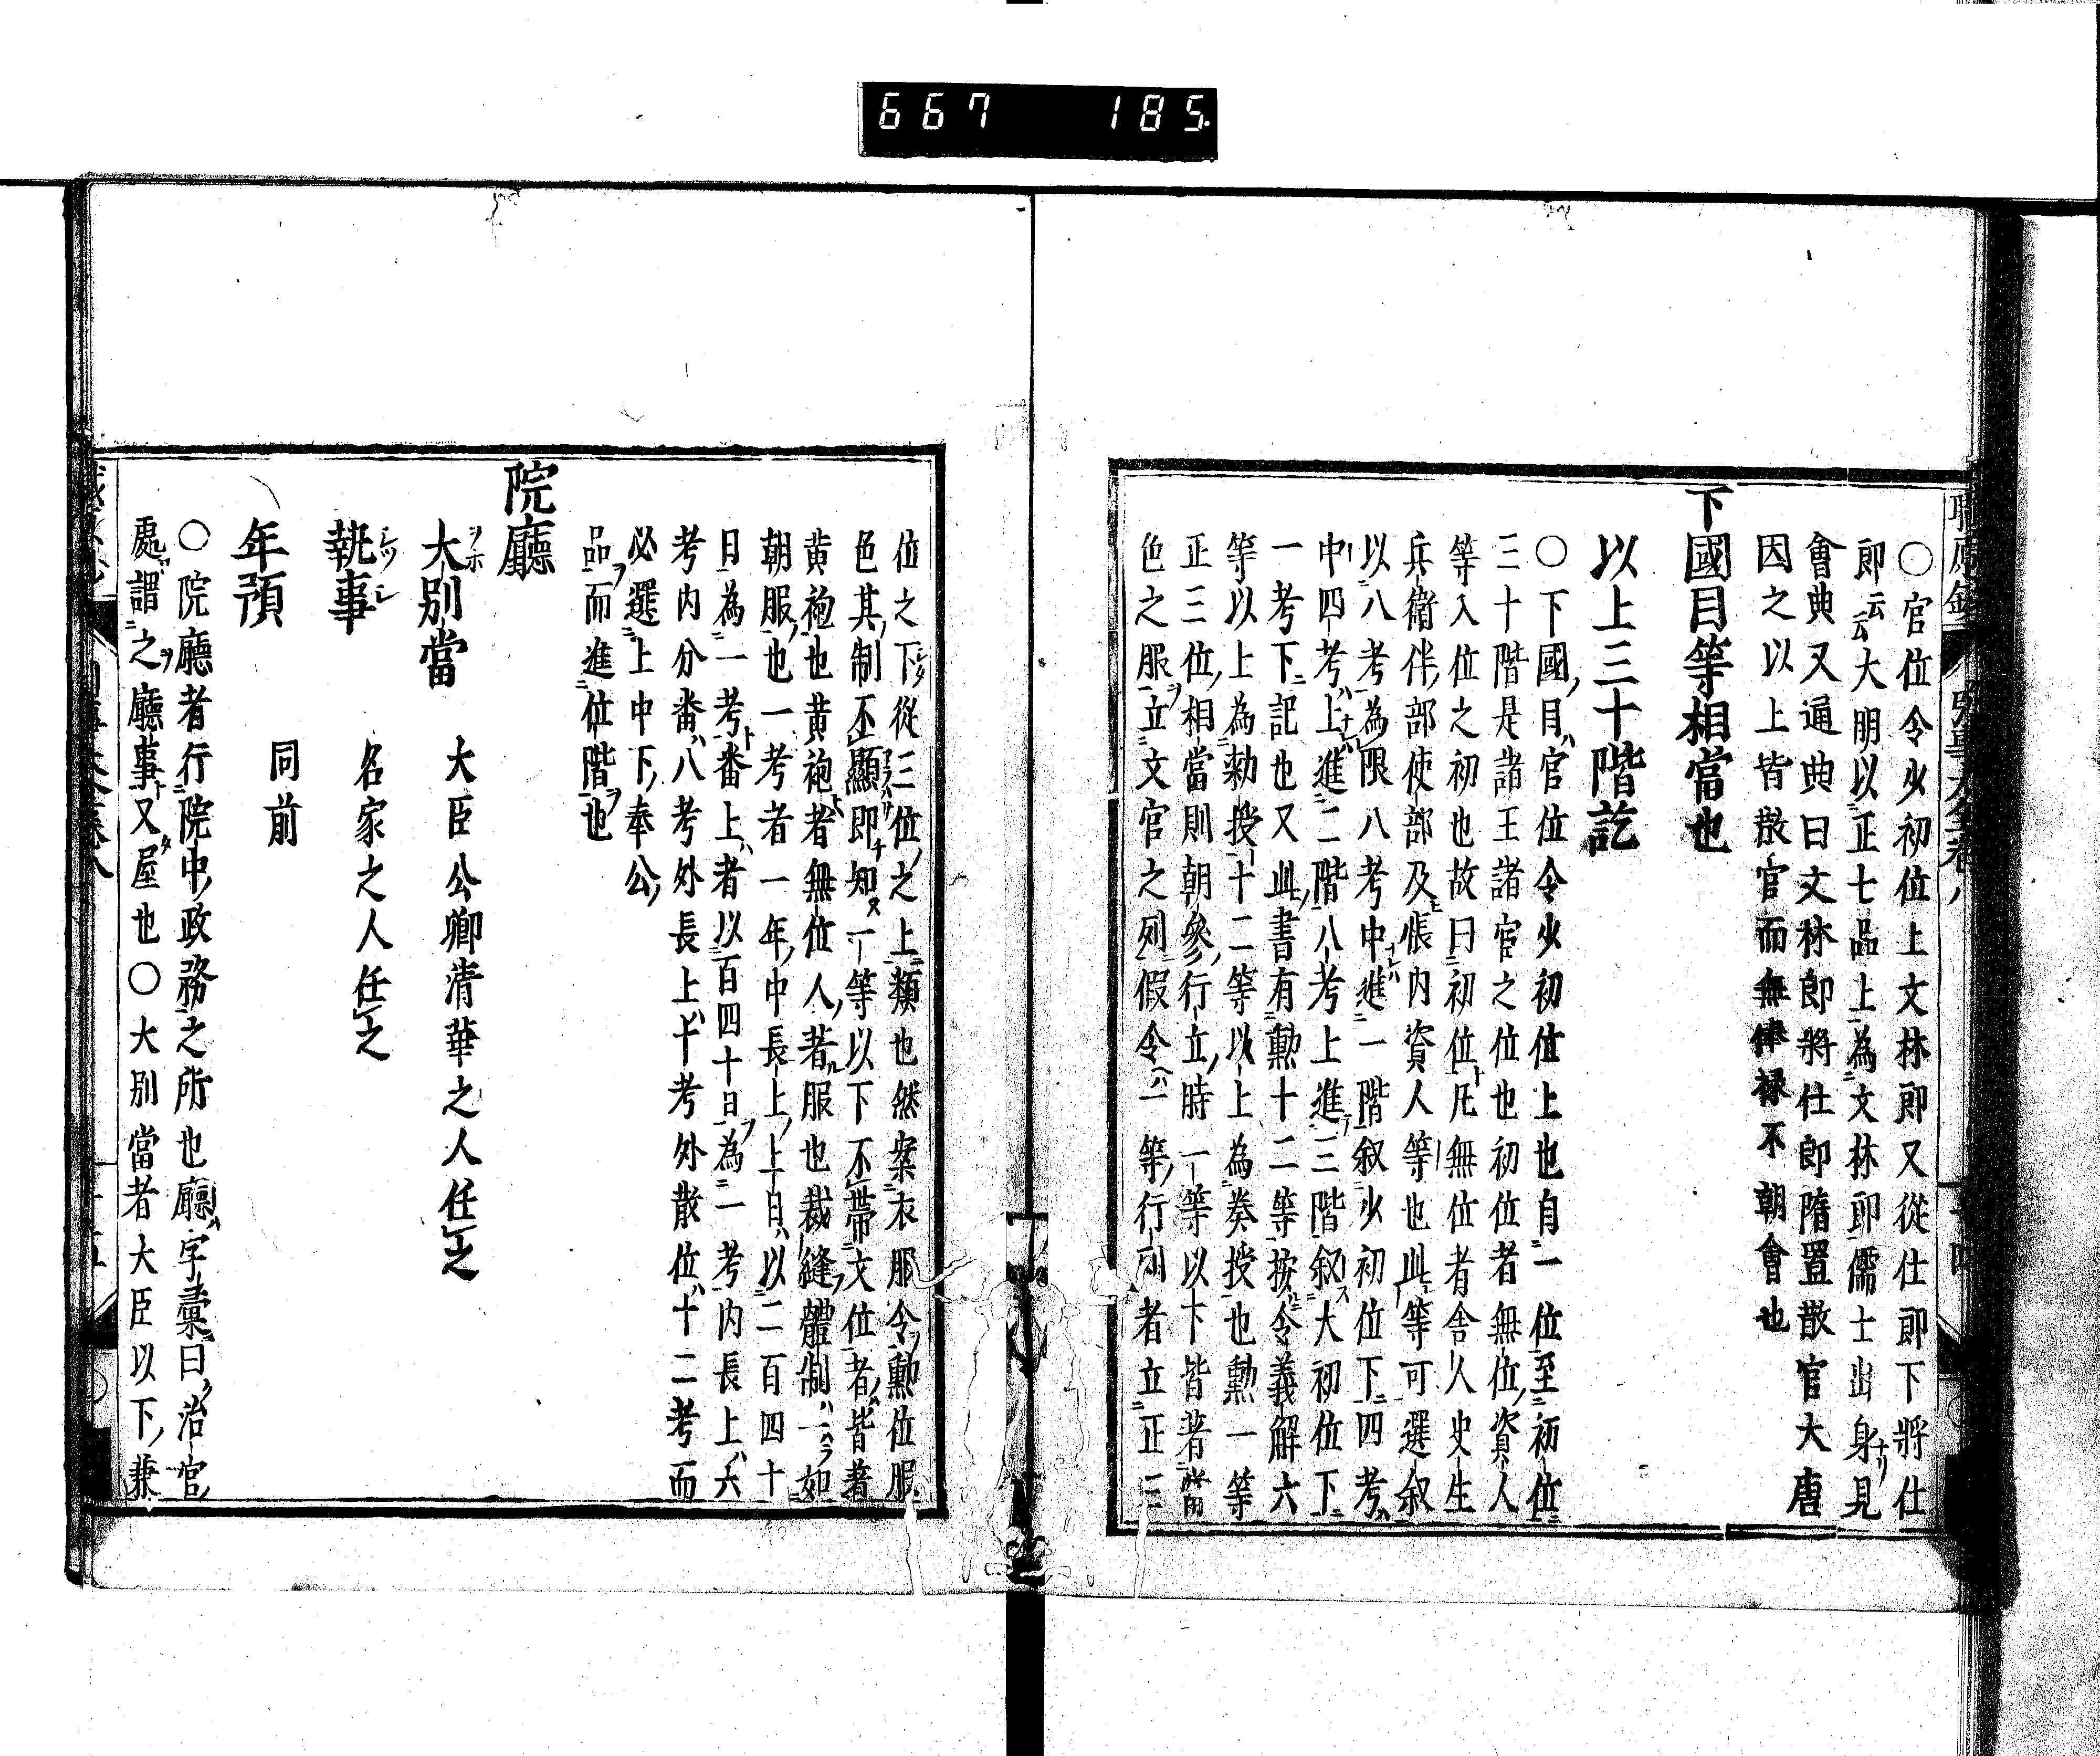 667 185
○官位令少初位上文林郎又從仕郎下將仕
郎云云大明以正七品上為文林郎儒士出身見
會典又通典曰文林郎將仕郎隋置散官大唐
因之以上皆散官而無俸禄不朝會也
下國目等相當也
以上三十階訖
○下國目官位令少初位上也自一位至初位
三十階是諸王諸官之位也初位者無位資人
等入位之初也故曰初位凡無位者舎人史生
兵衛伴部使部及帳内資人等也此等可選叙
以八考為限八考中進一階叙少初位下四考
中四考上進二階八考上進三階叙大初位下
一考下記也又此書有勲十二等按令義解六
等以上為勅授十二等以上為奏授也勲一等
正三位相當則朝參行立時一等以下皆著當
色之服立文官之列假令一等行列者立正三
位之下從三位之上類也然案衣服令勲位服
色其制不顯即知一等以下不帶文位者皆著
黄袍也黄袍者無位人著服也裁縫體制一如
朝服也一考者一年中長上上日以二百四十
日為一考番上者以百四十日為一考内長上六
考内分番八考外長上十考外散位十二考而
必選上中下奉公
品而進位階也
院廳
大別當 大臣公卿清華之人任之
執事 名家之人任之
年預 同前
○院廳者行院中政務之所也廳字彙曰治官
處謂之廳事又屋也○大別當者大臣以下兼